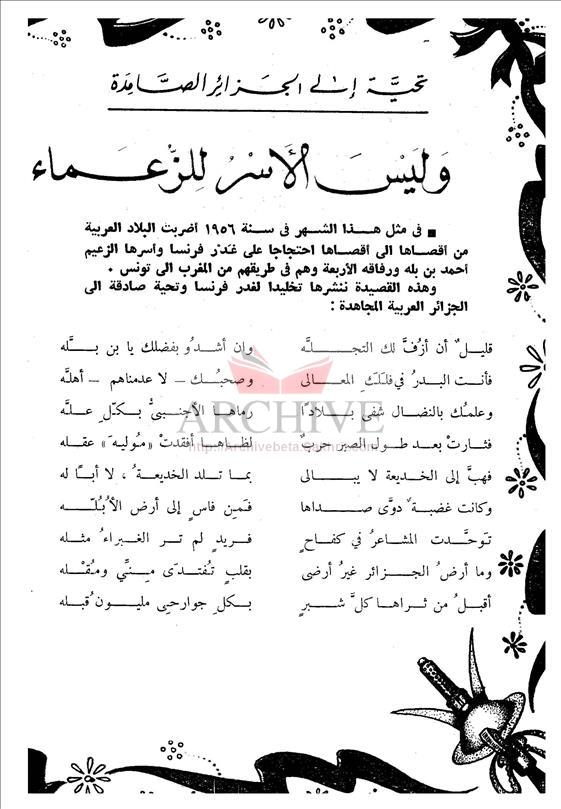 تحيّة إلى الجزائر الصّامدة
وَلَيْسَ الأَسْرُ لِلزّعَماء
■ فى مثل هــذا الشهر فى سنة ١٩٥٦ أضربت البلاد العربية
من أقصاها الى أقصاها احتجاجا على غدر فرنسا وأسرها الزعيم
أحمد بن بله ورفاقه الأربعة وهم فى طريقهم من المغرب الى تونس .
وهذه القصيدة ننشرها تخليدا لغدر فرنسا وتحية صادقة الى
الجزائر العربية المجاهدة :
قليلٌ أن أزُفَّ لك التجلــَّه وإن أشدُو بفضلك يا بن بــلَّه
فأنت البدرُ في فلَكِ المعـالى وصحبُـك – لا عدمناهم – أهلَّه
وعلمُك بالنضال شفى بلادًا رماها الأجنبىُّ بكلِّ علــَّه
فثارتْ بعد طول الصبر حربٌ لظاهـا أفقدتْ «مُوليهَ» عقله
فهبَّ إلى الخديعة لا يبـالى بما تلد الخديعةُ ، لا أبـًا له
وكانت غضبةٌ دوَّى صـداها فـمِن فاسٍ إلى أرض الأُبُلّــَه
توحَّدت المشاعرُ في كفـاحٍ فريدٍ لم تر الغبراءُ مثله
وما أرضُ الجـزائر غيرُ أرضى بقلبٍ تُفتـدَى مـنِّي ومُقْـله
أقبلُ من ثراها كلَّ شـبرٍ بكلِ جوارحى مليـونَ قُبله
ARCHIVE
http://Archivebeta.Sakhrit.com